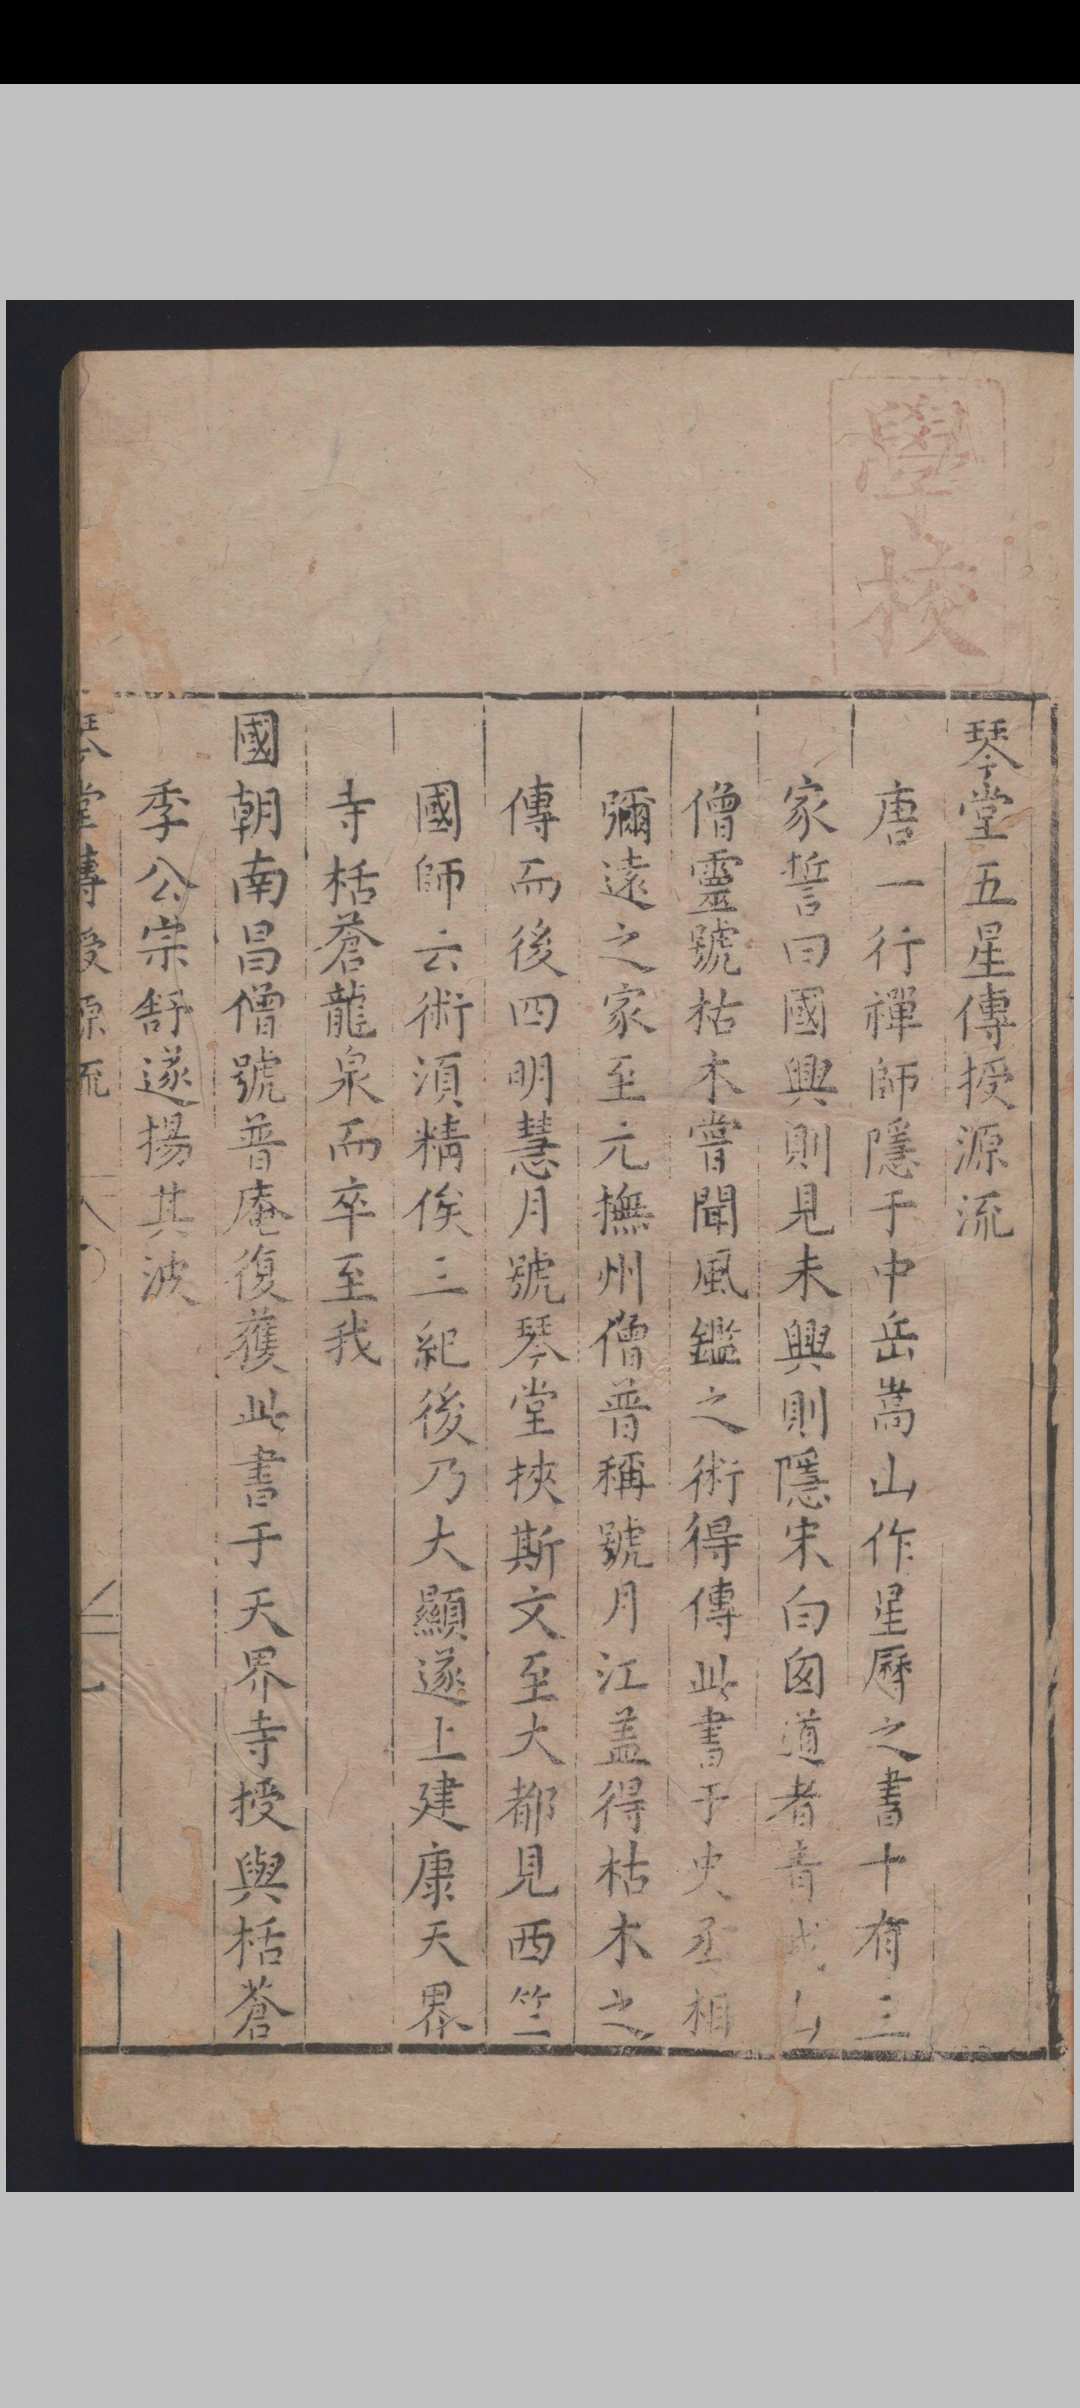 學校
琴堂五星傳授源流
唐一行禪師隱于中岳嵩山作星曆之書十有三
家誓曰國興則見未興則隱宋白囪道者書成
僧靈號枯木嘗聞風鑑之術得傳此書于史丞相
彌遠之家至元撫州僧普稱號月江盖得枯木之
傳而後四明慧月號琴堂挾斯文至大都見西竺
國師云術湏精俟三紀後乃大顯遂上建康天界
寺栝蒼龍泉而卒至我
國朝南昌僧號普庵復獲此書于天界寺授與栝蒼
季公宗舒遂揚其波
琴堂傳授源流